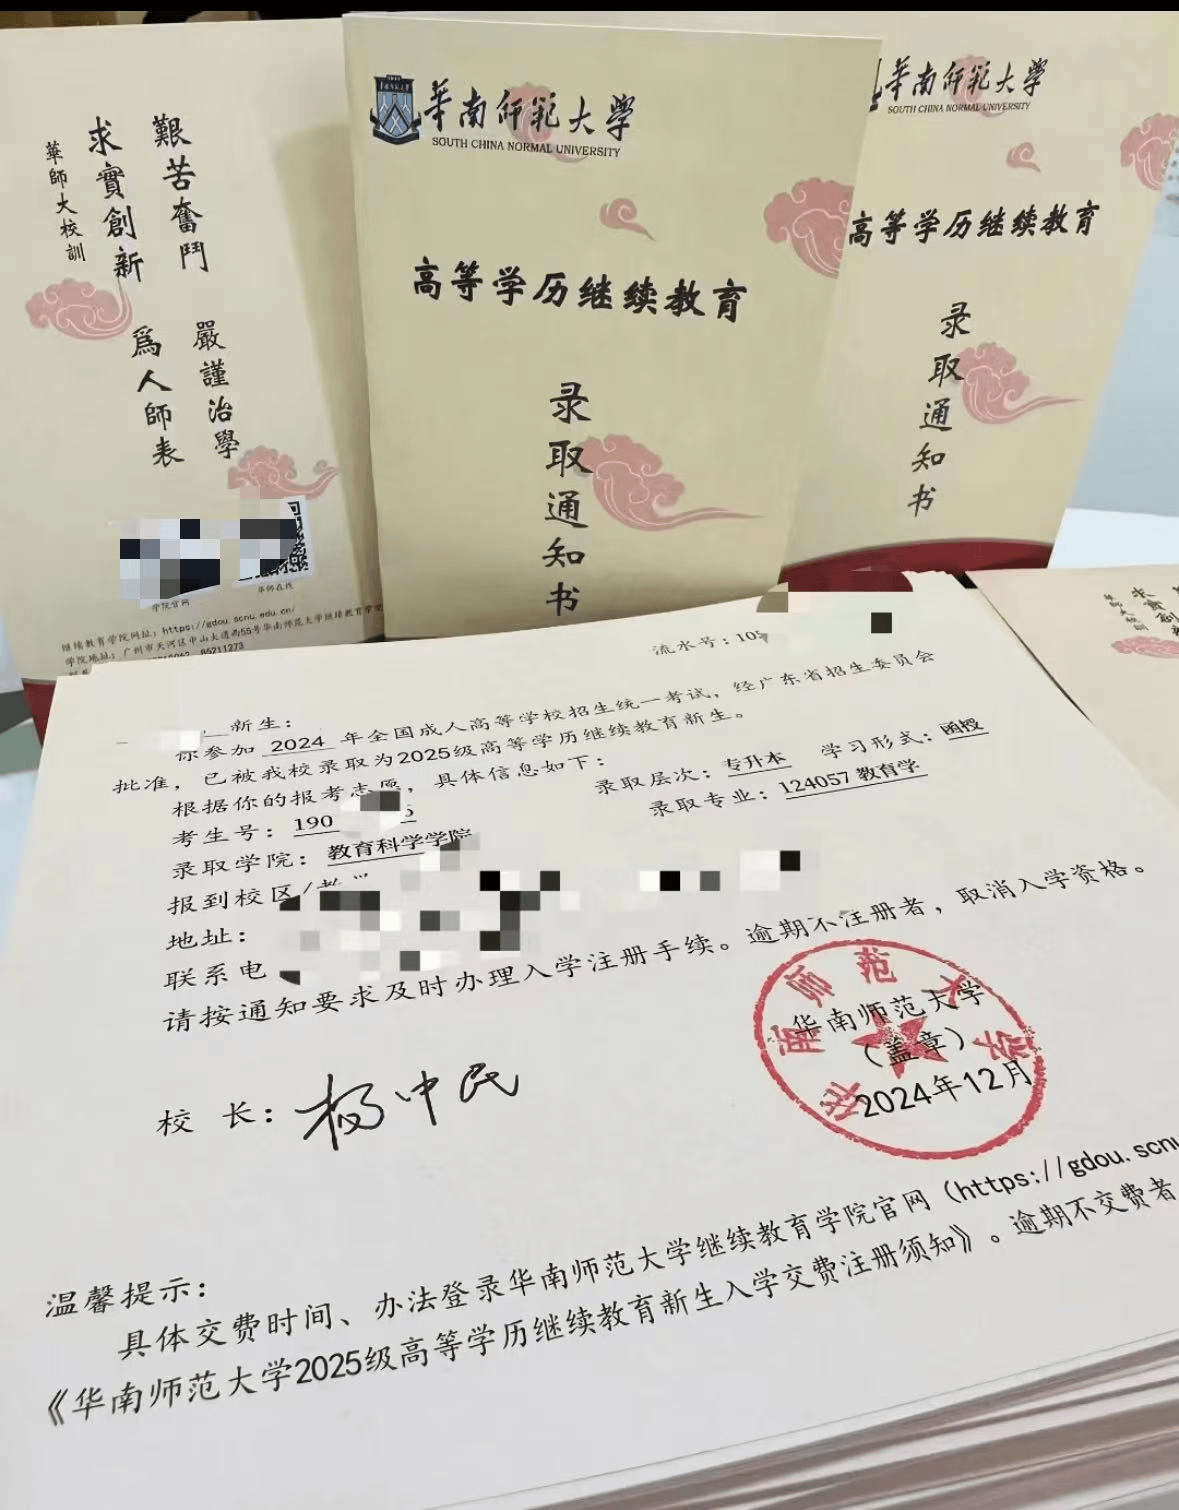 艱苦奮鬥 嚴謹治學
求實創新 爲人師表
華師大校訓
學院官网
华师在线
继续教育学院网址：https://gdou.scnu.edu.cn/
学院地址：广州市天河区中山大道西55号华南师范大学继续教育学
85211273
華南师範大学
SOUTH CHINA NORMAL UNIVERSITY
高等学历继续教育
录取通知书
華南师範大学
SOUTH CHINA NORMAL UNIVERSITY
高等学历继续教育
录取通知书
求實創新
華師大校訓
流水号：105
新生：
你参加 2024 年全国成人高等学校招生统一考试，经广东省招生委员会
批准，已被我校录取为2025级高等学历继续教育新生。
根据你的报考志愿，具体信息如下：
考生号：190
录取层次：专升本 学习形式：函授
录取学院：教育科学学院
录取专业：124057 教育学
报到校区/教学
地址：
联系电
请按通知要求及时办理入学注册手续。逾期不注册者，取消入学资格。
华南师范大学
华南师范大学
（盖章）
2024年12月
校 长：杨中民
温馨提示：
具体交费时间、办法登录华南师范大学继续教育学院官网（https://gdou.scnu
《华南师范大学2025级高等学历继续教育新生入学交费注册须知》。逾期不交费者